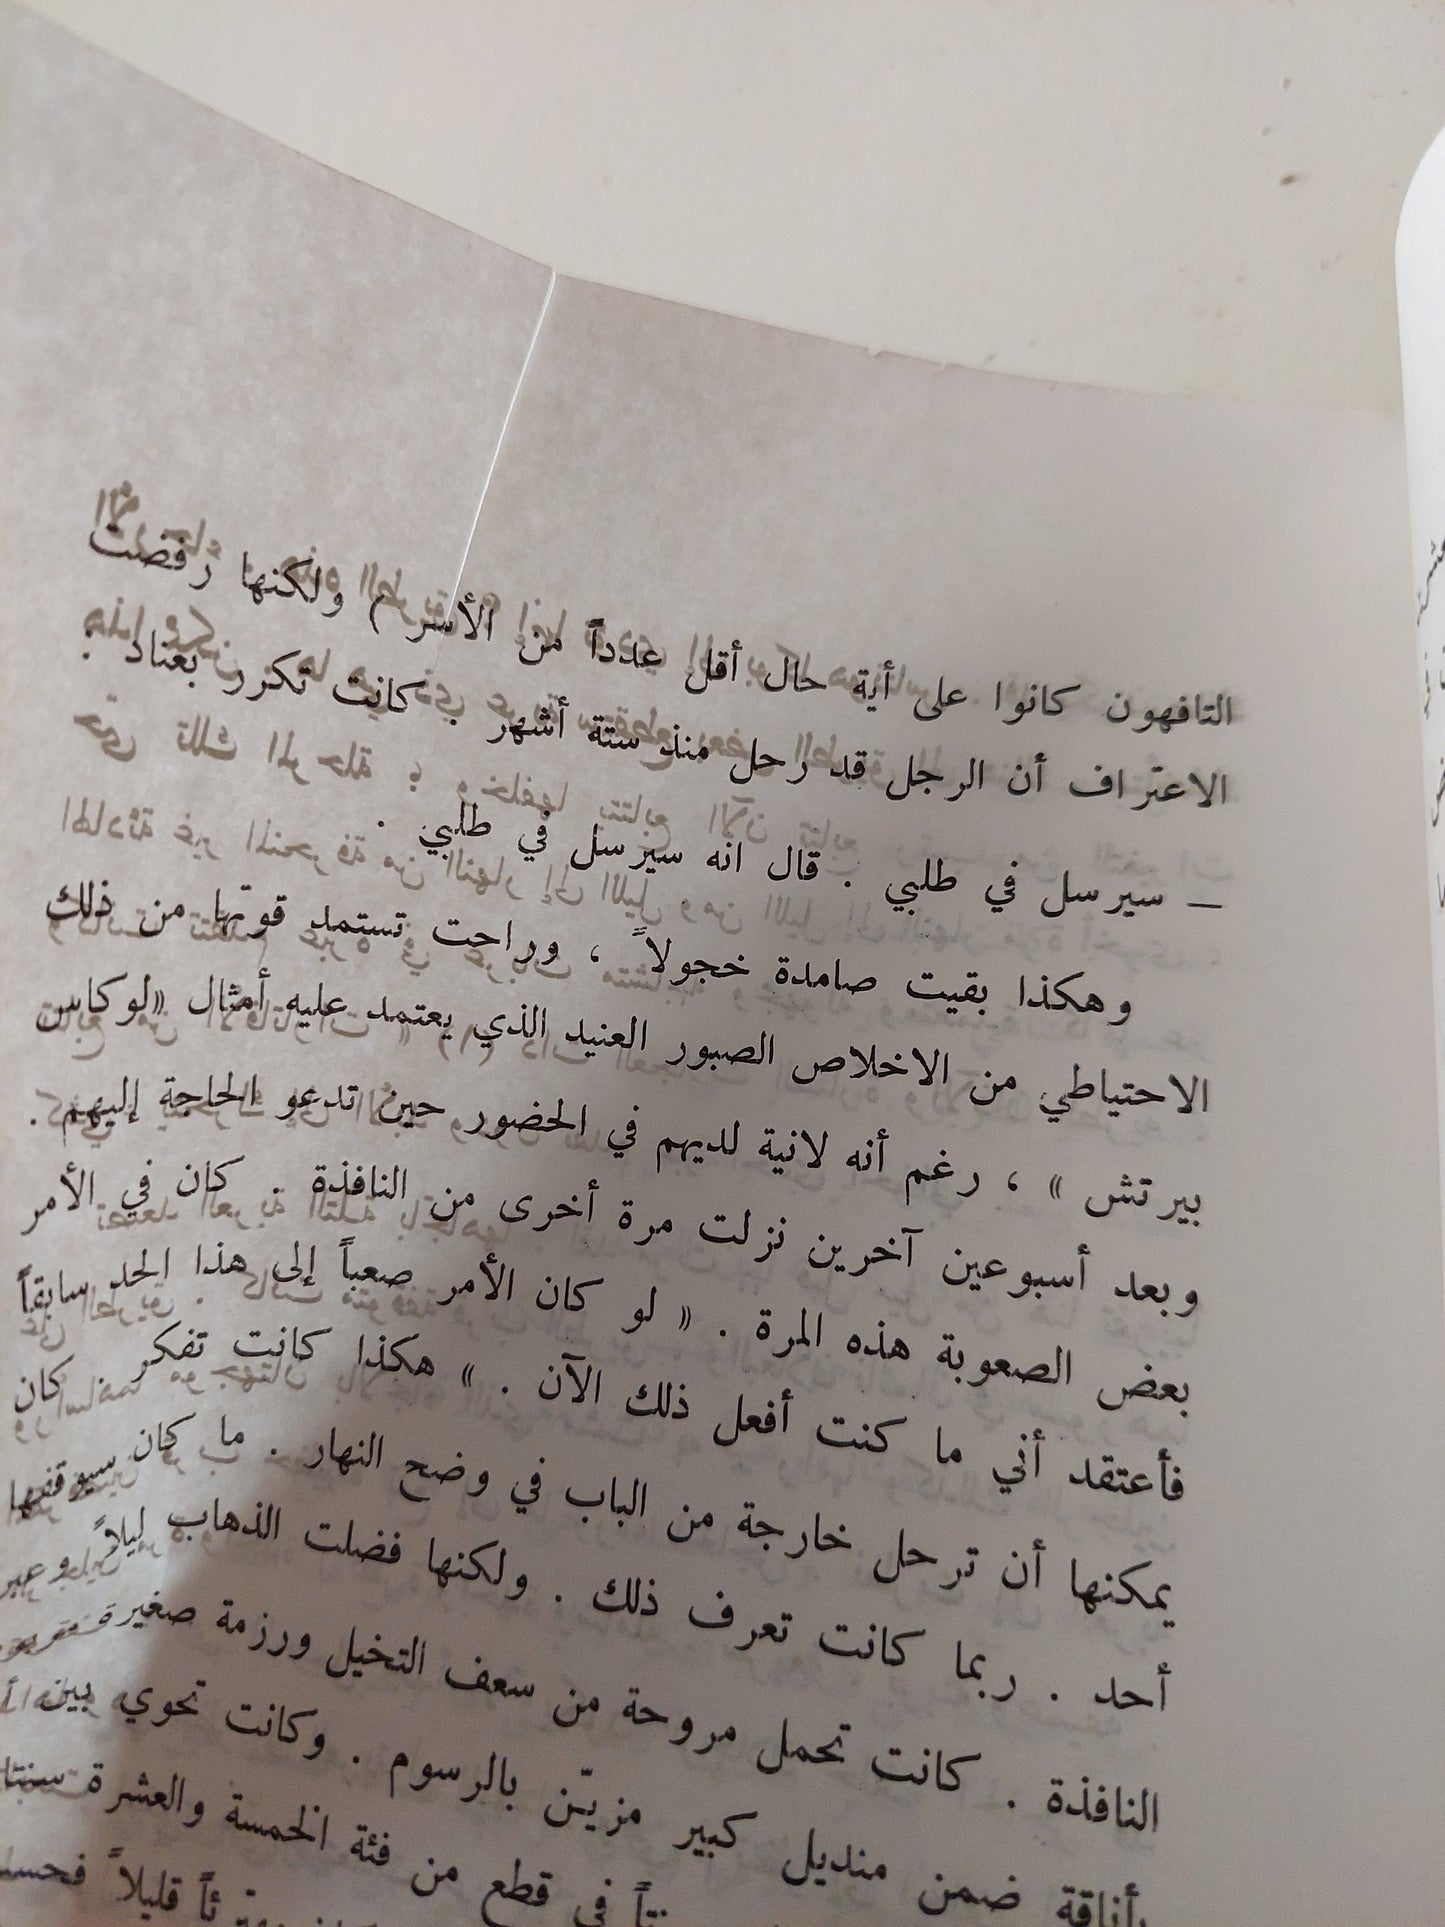 التافهون كانوا على أية حال أقل عدداً من الأسر ) ولكنها رفضت
الاعتراف أن الرجل قد رحل منذ ستة أشهر . كانت تكرر بعناد :
— سيرسل في طلبي . قال انه سيرسل في طلبي .
وهكذا بقيت صامدة خجولاً ، وراحت تستمد قوتها من ذلك
الاحتياطي من الاخلاص الصبور العنيد الذي يعتمد عليه أمثال «لوكاس
بيرتش » ، رغم أنه لانية لديهم في الحضور حين تدعو الحاجة إليهم .
وبعد أسبوعين آخرين نزلت مرة أخرى من النافذة . كان في الأمر
بعض الصعوبة هذه المرة . « لو كان الأمر صعباً إلى هذا الحد سابقاً
فأعتقد أني ما كنت أفعل ذلك الآن . » هكذا كانت تفكر . كان
يمكنها أن ترحل خارجة من الباب في وضح النهار . ما كان سيوقفها
أحد . ربما كانت تعرف ذلك . ولكنها فضلت الذهاب ليلاً وعبر
النافذة . كانت تحمل مروحة من سعف التخيل ورزمة صغيرة
بأناقة ضمن منديل كبير مزيّن بالرسوم . وكانت تحوي بين
في قطع من فئة الخمسة والعشرة
قليلاً